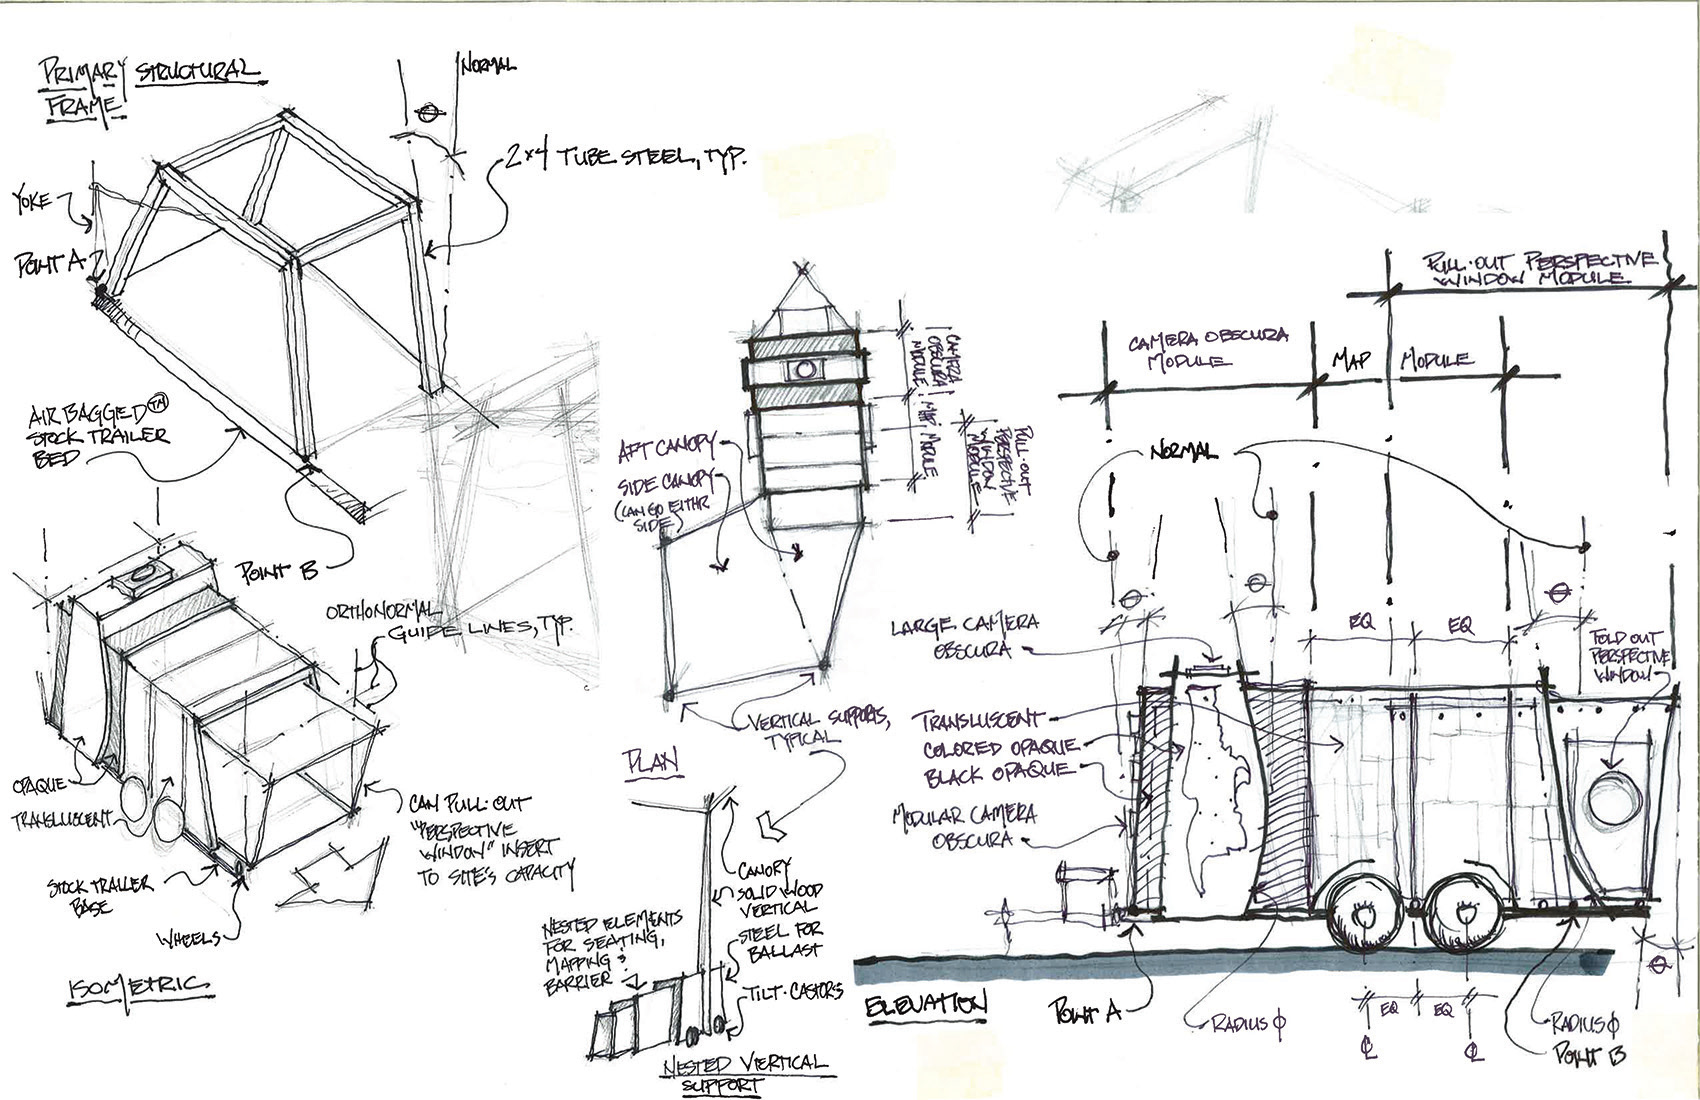 PRIMARY STRUCTURAL
FRAME
NORMAL
Θ
2×4 TUBE STEEL, TYP.
YOKE
POINT A
AIRBAGGED™
STOCK TRAILER
BED
POINT B
ORTHONORMAL
GUIDE LINES, TYP.
OPAQUE
TRANSLUSCENT
CAN PULL·OUT
"PERSPECTIVE
WINDOW" INSERT
TO SITE'S CAPACITY
STOCK TRAILER
BASE
WHEELS
ISOMETRIC
CAMERA
OBSCURA
MODULE
MAP MODULE
PULL·OUT
PERSPECTIVE
WINDOW
MODULE
AFT CANOPY
SIDE CANOPY
(CAN GO EITHR
SIDE)
VERTICAL SUPPORTS,
TYPICAL
PLAN
CANOPY
SOLID WOOD
VERTICAL
STEEL FOR
BALLAST
TILT·CASTORS
NESTED ELEMENTS
FOR SEATING,
MAPPING &
BARRIER
NESTED VERTICAL
SUPPORT
PULL·OUT PERSPECTIVE
WINDOW MODULE
CAMERA OBSCURA
MODULE
MAP MODULE
NORMAL
Θ
Θ
Θ
EQ
EQ
LARGE CAMERA
OBSCURA
FOLD OUT
PERSPECTIVE
WINDOW
TRANSLUSCENT
COLORED OPAQUE
BLACK OPAQUE
MODULAR CAMERA
OBSCURA
Θ
ELEVATION
POINT A
RADIUS ϕ
EQ
EQ
℄
℄
RADIUS ϕ
POINT B